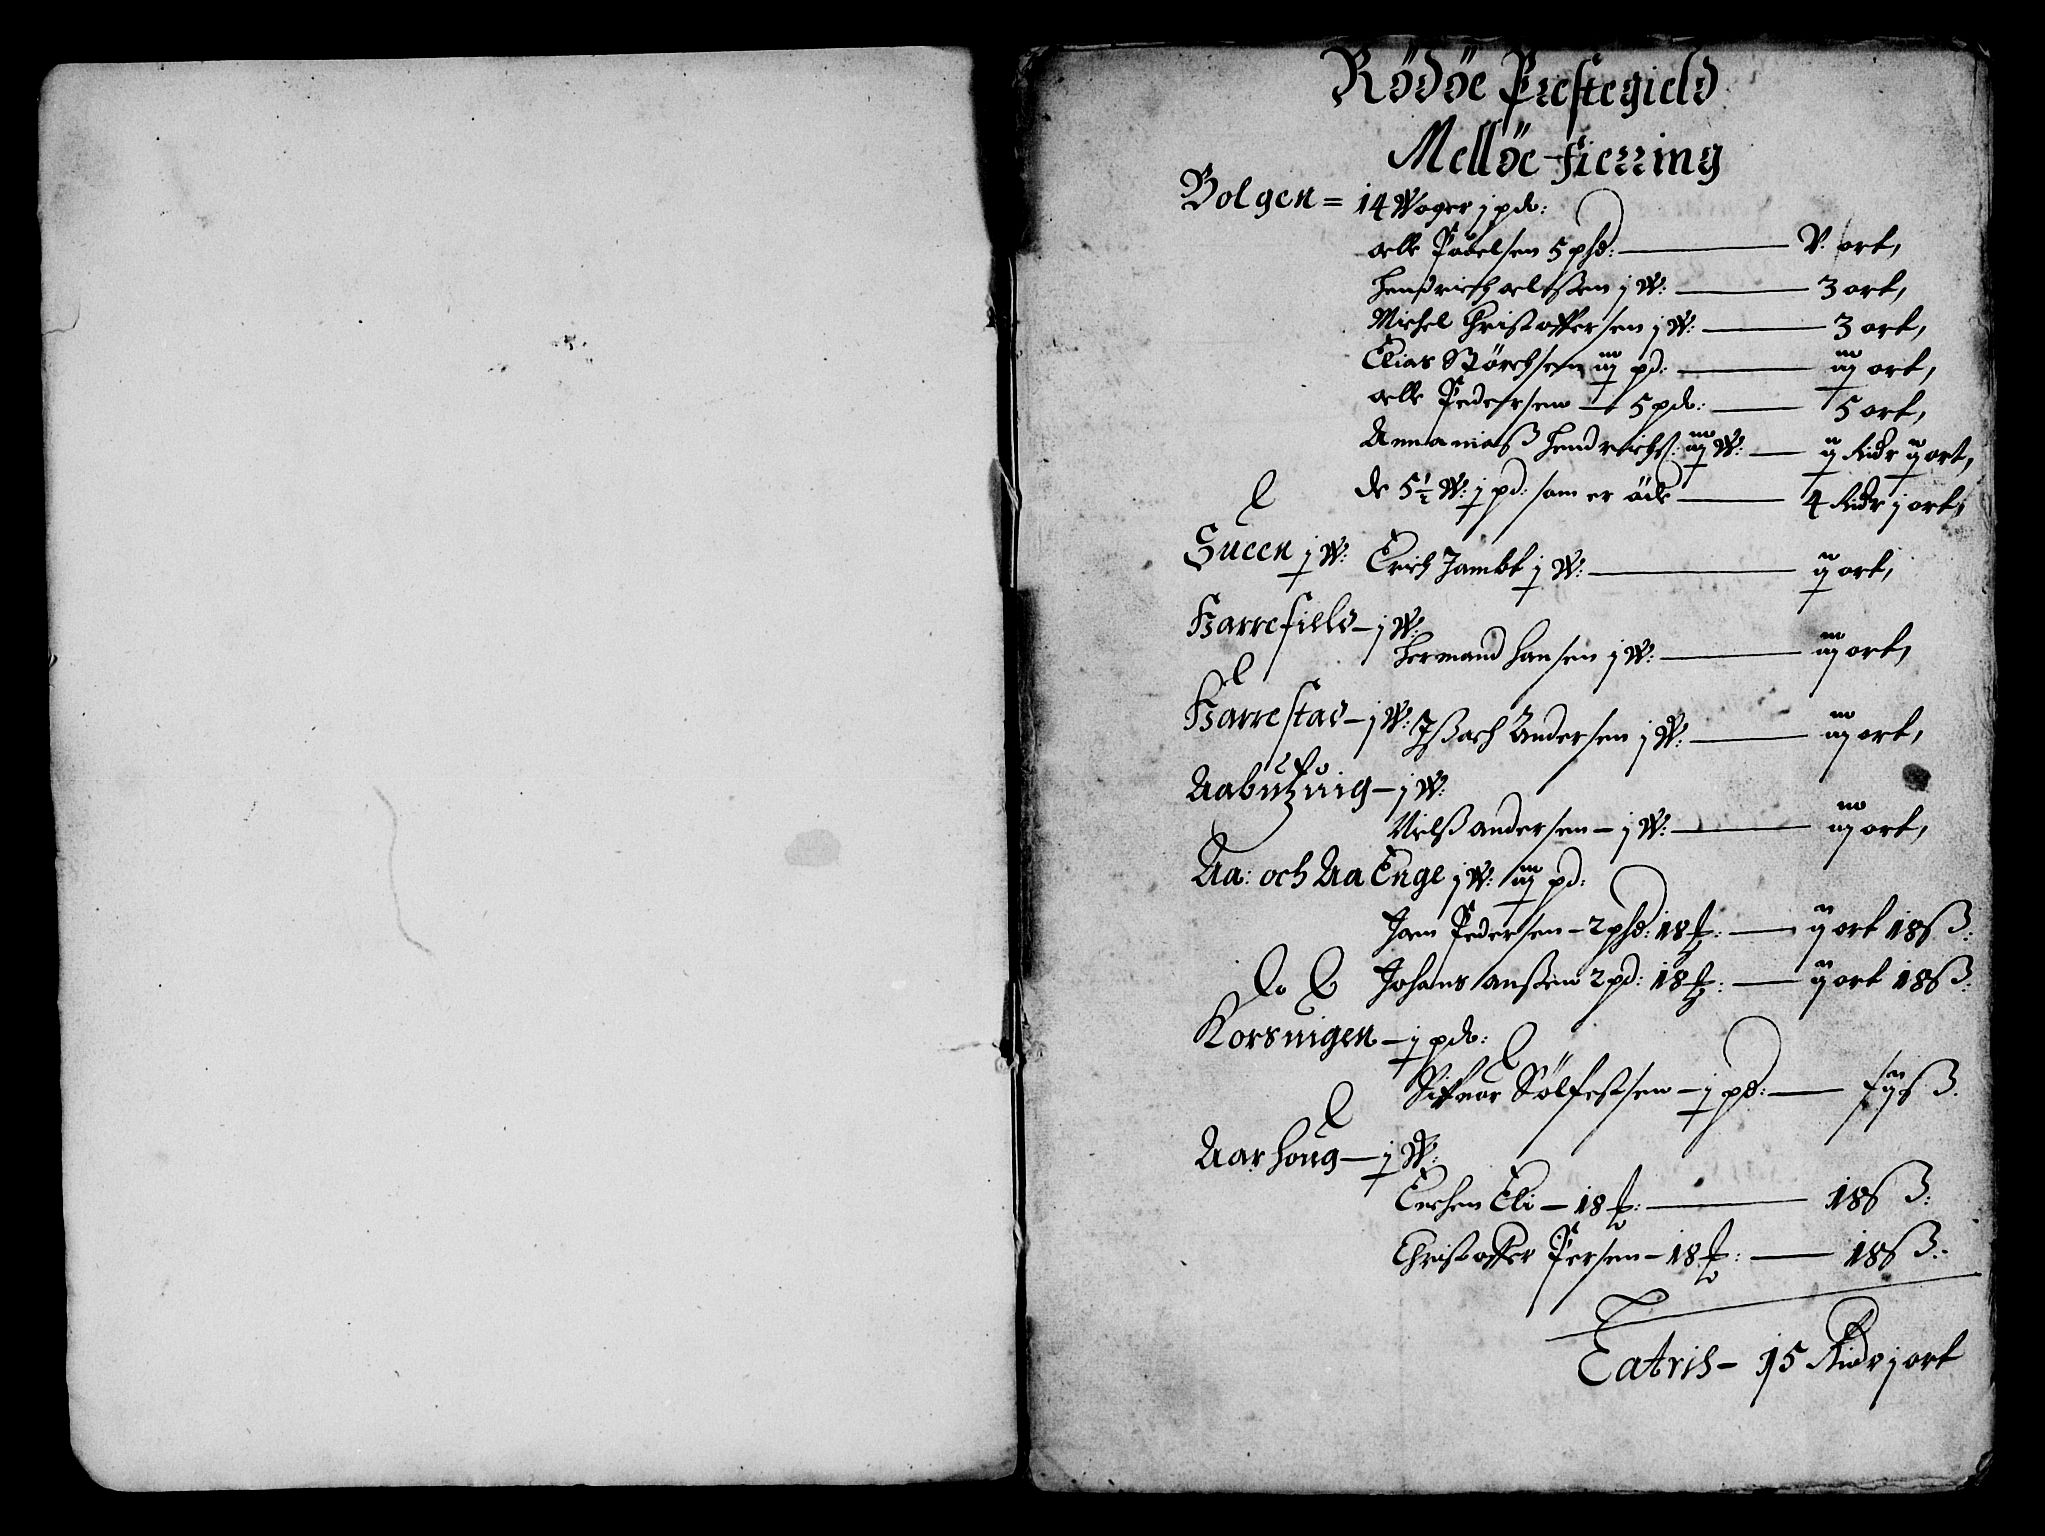 Rödöe Prestegield
Mellöe-fierring
Bolgen = 14 Woger j pd:
oelle Povelsen 5 phd: V. ort,
Hendrich oelssen j W: 3 ort,
Michel Christoffersen j W: 3 ort,
Elias Störchsen iij pd: iij ort,
oelle Pedersen 5 pd: 5 ort,
Annanias Hendrichs: iij W: ij Ridr ij ort,
de 5½ W: j pd: som er öde 4 Ridr j ort,
Sueen j W: Erich Jambt j W: ij ort,
Harrefield - j W:
Hermand Hansen j W: iij ort,
Harrestad - j W: Issach Andersen j W: iij ort,
Aabutzuig - j W:
Nielss andersen - j W: iij ort,
Aa: och Aa Enge j W: iij pd:
Joen Pedersen - 2 phd: 18 ℔: ij ort 18 ß:
Johans anssen 2 pd: 18 ℔: ij ort 18 ß:
Korsuigen - j pd:
Siffuor Sölfestsen - j pd: ß.
Aarhoug - j W:
Erchen Eli - 18 ℔: 18 ß:
Christoffer Persen - 18 ℔: 18 ß:
Latris - 15 Ridr j ort